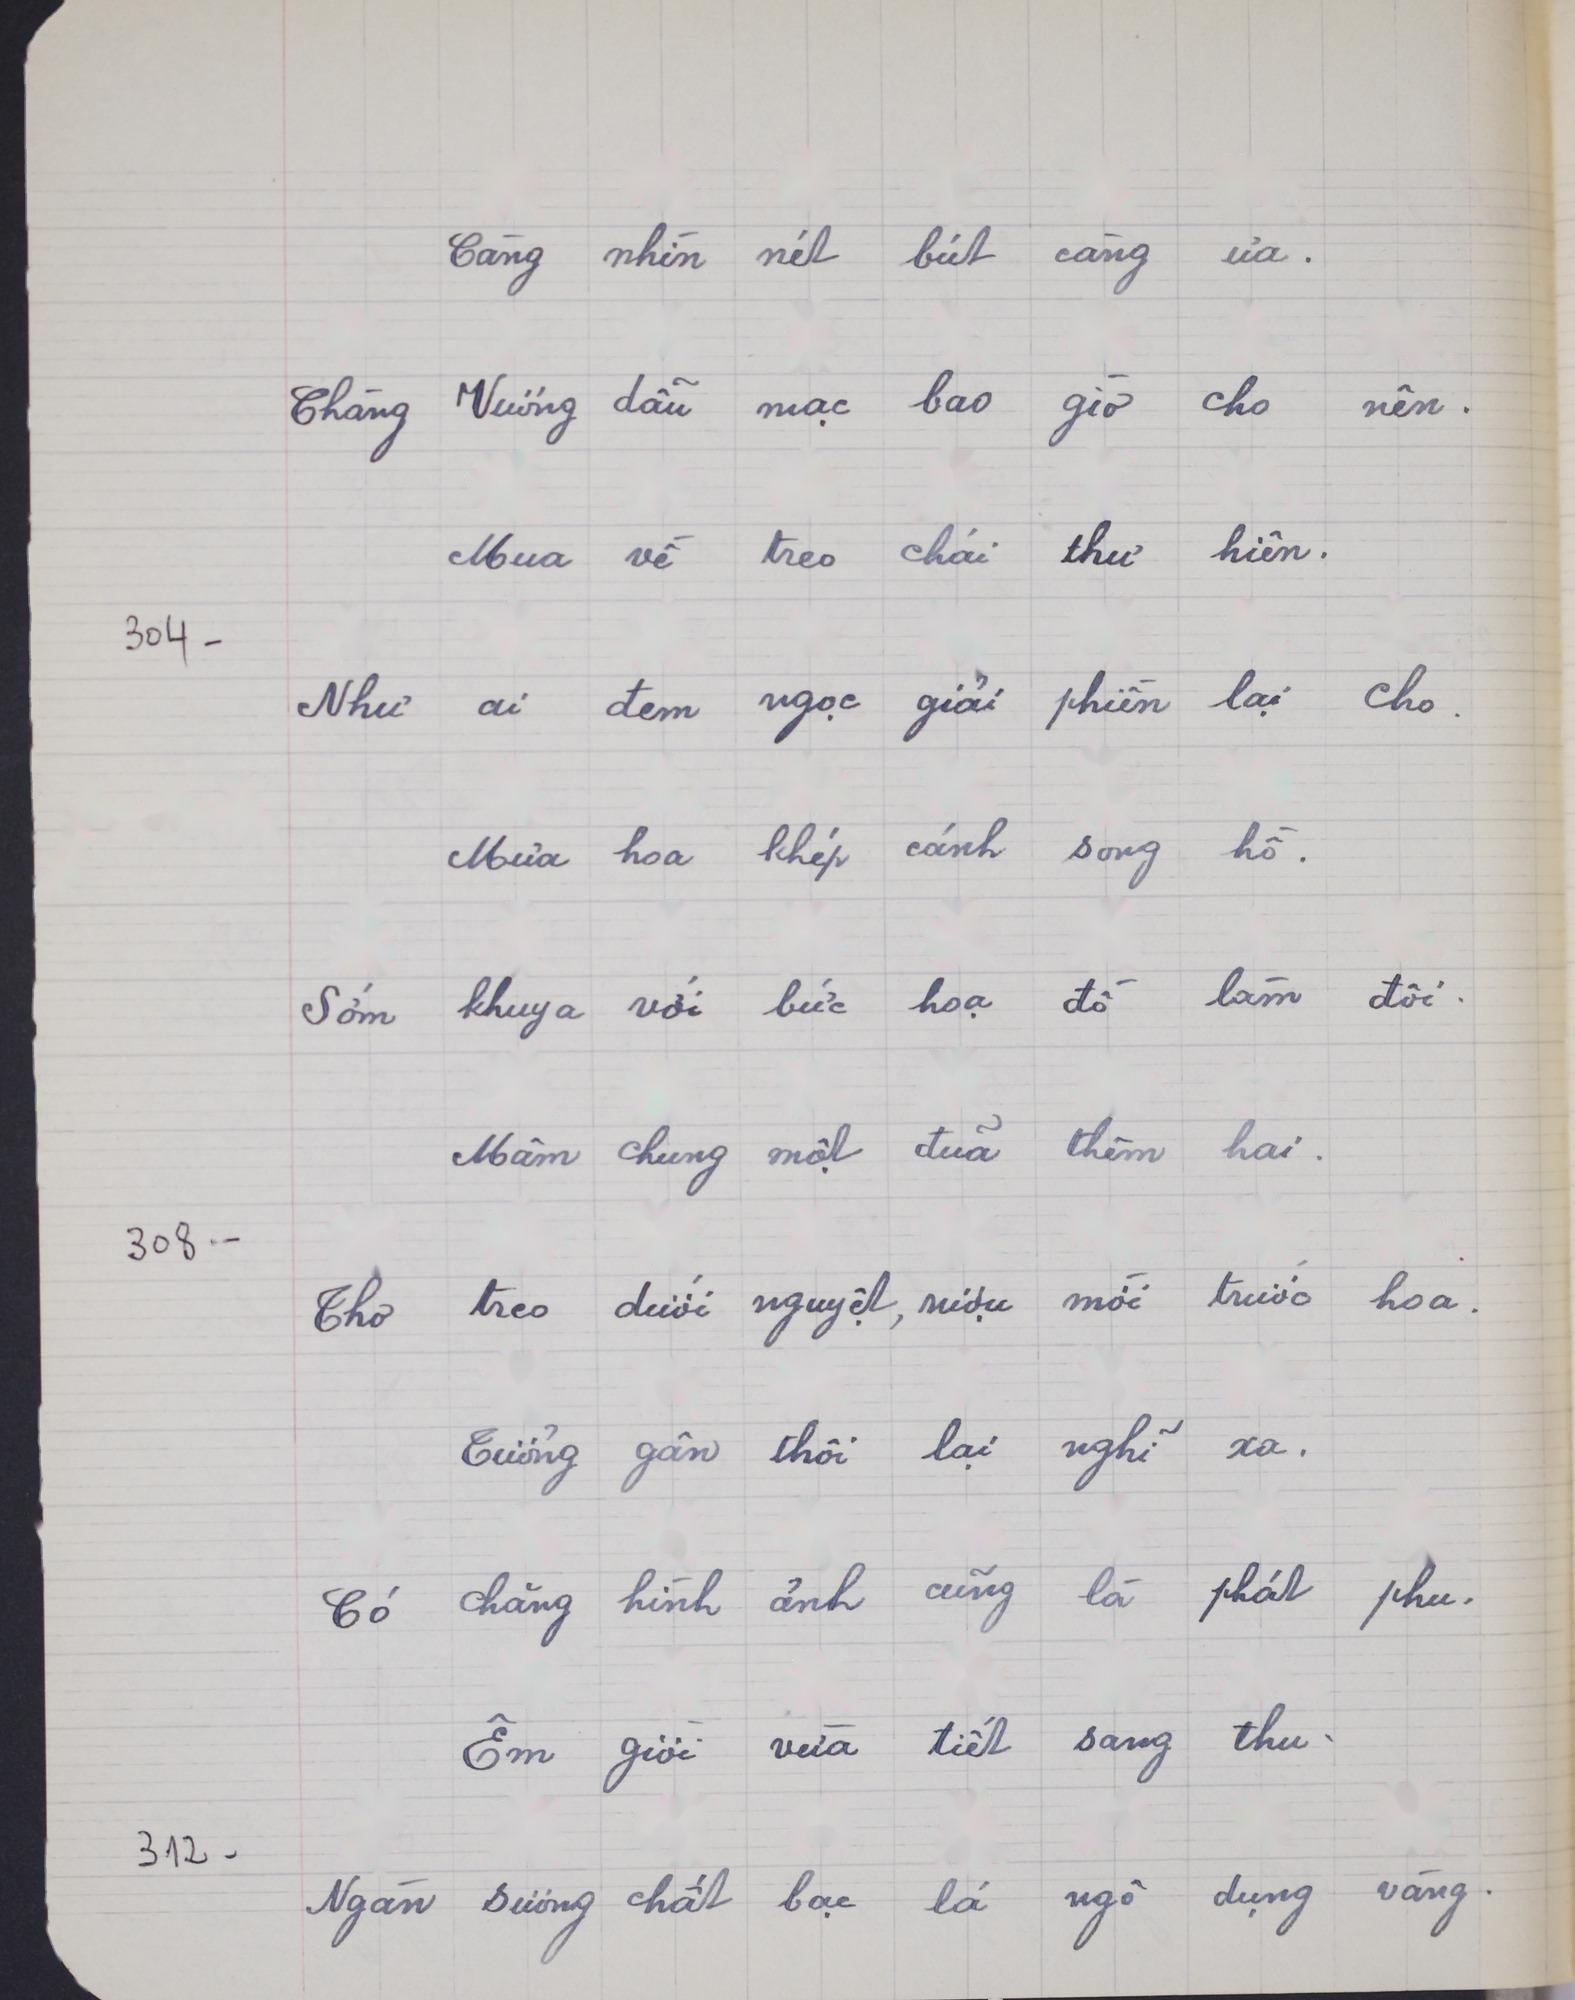 Càng nhìn nét bút càng ưa.
Chàng Vương dẫu mạc bao giờ cho nên.
Mua về treo chái thư hiên.
304 -
Như ai đem ngọc giải phiền lại cho.
Mưa hoa khép cánh song hồ.
Sớm khuya với bức hoạ đồ làm đôi.
Mâm chung một đũa thêm hai.
308 -
Thơ treo dưới nguyệt, rượu mời trước hoa.
Tưởng gần thôi lại nghĩ xa.
Có chăng hình ảnh cũng là phát phu.
Êm giời vừa tiết sang thu.
312 -
Ngàn sương chất bạc lá ngô dụng vàng.